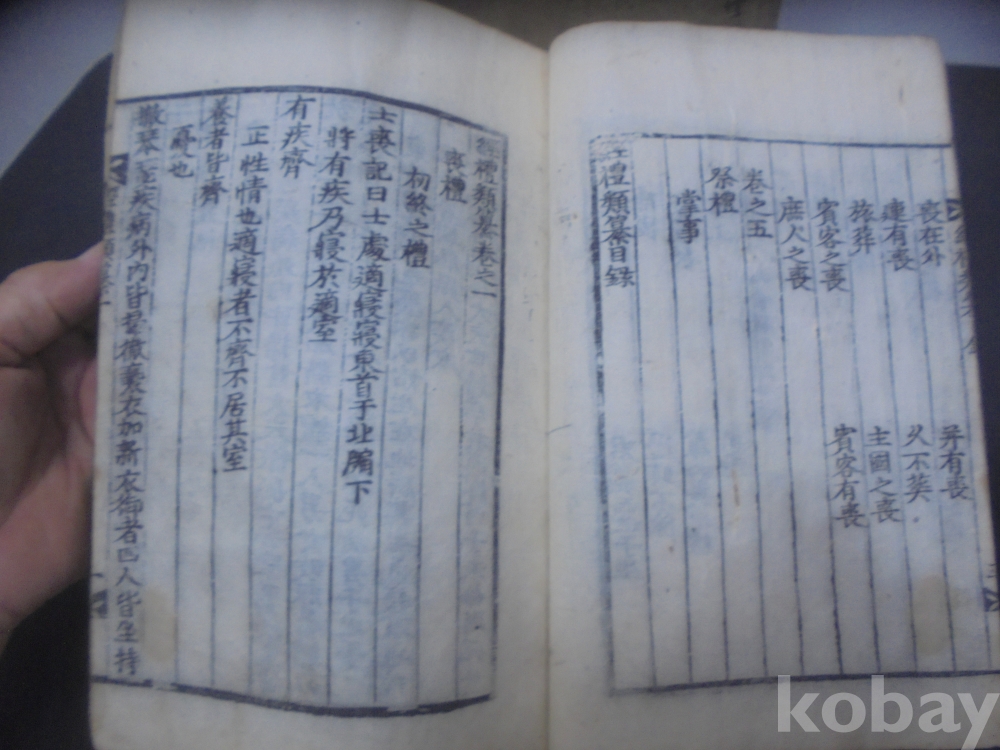 喪在外 并有喪
連有喪 久不葬
旅葬 主國之喪
賓客之喪 賓客有喪
庶人之喪
卷之五
祭禮
堂事
禮類纂目録
經禮類纂卷之一
喪禮
初終之禮
士喪記曰士處適寢寢東首于北牖下
將有疾乃寢於適室
有疾齊
正性情也適寢者不齊不居其室
養者皆齊
憂也
徹琴瑟疾病外內皆埽徹褻衣加新衣御者四人皆坐持
kobay